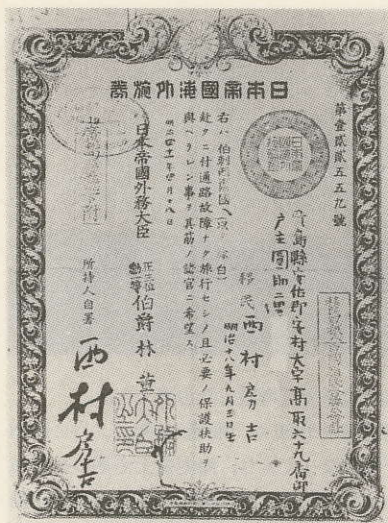 日本帝國海外旅券
第壹貳貳五五九號
廣島縣安佐郡安村大字高取六十九番邸
戸主圓助二男
移民 西村房吉
明治十八年九月三日生
右ハ伯剌西爾國ヘ
赴クニ付通路故障ナク旅行セシメ且必要ノ保護扶助ヲ
與ヘラレン事ヲ其筋ノ諸官ニ希望ス
明治四十一年四月十八日
日本帝國外務大臣
正三位
勳一等伯爵林董
所持人自署
西村房吉